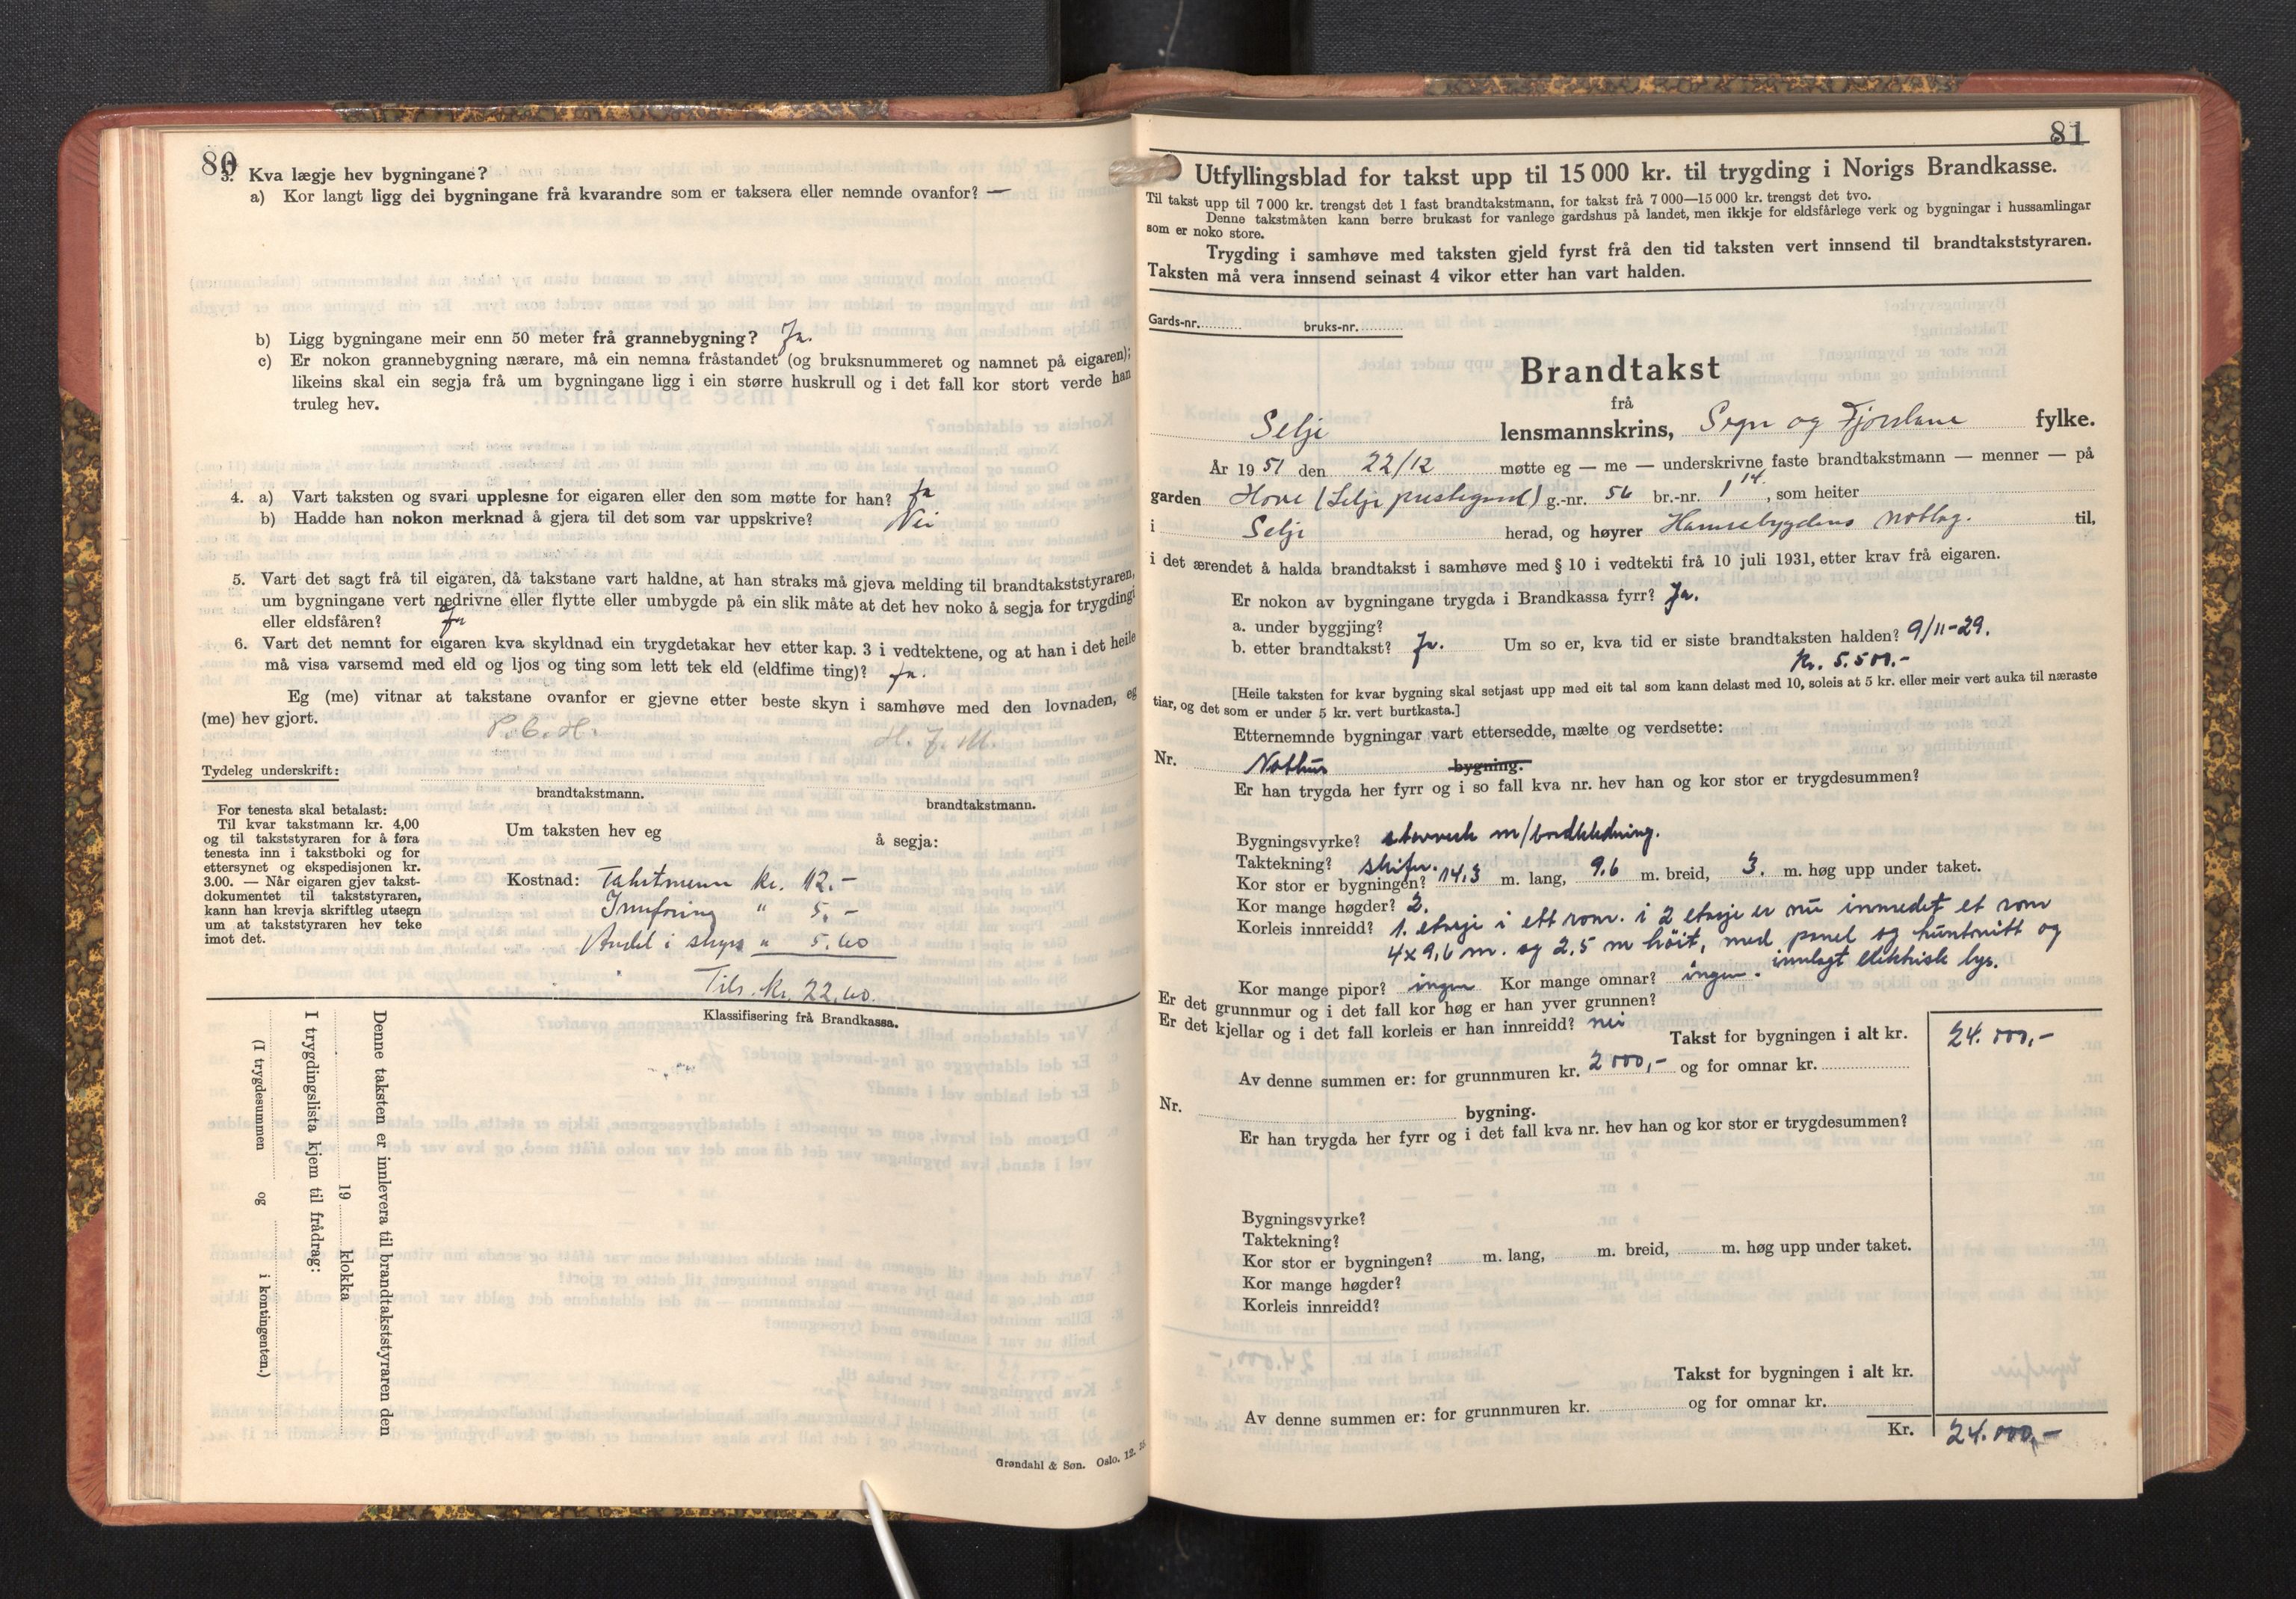 80
3. Kva lægje hev bygningane?
a) Kor langt ligg dei bygningane frå kvarandre som er taksera eller nemnde ovanfor? —
b) Ligg bygningane meir enn 50 meter frå grannebygning? Ja.
c) Er nokon grannebygning nærare, må ein nemna fråstandet (og bruksnummeret og namnet på eigaren);
likeins skal ein segja frå um bygningane ligg i ein større huskrull og i det fall kor stort verde han
truleg hev.
4. a) Vart taksten og svari upplesne for eigaren eller den som møtte for han? Ja
b) Hadde han nokon merknad å gjera til det som var uppskrive? Nei
5. Vart det sagt frå til eigaren, då takstane vart haldne, at han straks må gjeva melding til brandtakststyraren,
um bygningane vert nedrivne eller flytte eller umbygde på ein slik måte at det hev noko å segja for trygdingi
eller eldsfåren? Ja
6. Vart det nemnt for eigaren kva skyldnad ein trygdetakar hev etter kap. 3 i vedtektene, og at han i det heile
må visa varsemd med eld og ljos og ting som lett tek eld (eldfime ting)? Ja.
Eg (me) vitnar at takstane ovanfor er gjevne etter beste skyn i samhøve med den lovnaden, eg
(me) hev gjort.
P. C. H. H. J. M.
Tydeleg underskrift:
brandtakstmann. brandtakstmann.
For tenesta skal betalast:
Til kvar takstmann kr. 4,00
og til takststyraren for å føra
tenesta inn i takstboki og for
ettersynet og ekspedisjonen kr.
3.00. — Når eigaren gjev takst-
dokumentet til takststyraren,
kann han krevja skriftleg utsegn
um at takststyraren hev teke
imot det.
Um taksten hev eg å segja:
Kostnad: Takstmenn kr. 12.-
Innføring " 5.-
Andel i skyss " 5.60
Tils. kr. 22.60.
Klassifisering frå Brandkassa.
Denne taksten er innlevera til brandtakststyraren den
19 klokka
I trygdingslista kjem til frådrag:
(I trygdesummen og i kontingenten.)
Grøndahl & Søn. Oslo. 12.
81
Utfyllingsblad for takst upp til 15 000 kr. til trygding i Norigs Brandkasse.
Til takst upp til 7 000 kr. trengst det 1 fast brandtakstmann, for takst frå 7 000—15 000 kr. trengst det tvo.
Denne takstmåten kann berre brukast for vanlege gardshus på landet, men ikkje for eldsfårlege verk og bygningar i hussamlingar
som er noko store.
Trygding i samhøve med taksten gjeld fyrst frå den tid taksten vert innsend til brandtakststyraren.
Taksten må vera innsend seinast 4 vikor etter han vart halden.
Gards-nr. bruks-nr.
Brandtakst
frå
Selje lensmannskrins, Sogn og Fjordane fylke.
År 1951 den 22/12 møtte eg — me — underskrivne faste brandtakstmann — menner — på
garden Hove (Selje prestegard) g.-nr. 56 br.-nr. 1 14, som heiter
i Selje herad, og høyrer Hamsebygdens notlag. til,
i det ærendet å halda brandtakst i samhøve med § 10 i vedtekti frå 10 juli 1931, etter krav frå eigaren.
Er nokon av bygningane trygda i Brandkassa fyrr? Ja.
a. under byggjing?
b. etter brandtakst? Ja. Um so er, kva tid er siste brandtaksten halden? 9/11-29.
Kr. 5.500.-
[Heile taksten for kvar bygning skal setjast upp med eit tal som kann delast med 10, soleis at 5 kr. eller meir vert auka til næraste
tiar, og det som er under 5 kr. vert burtkasta.]
Etternemnde bygningar vart ettersedde, mælte og verdsette:
Nr. Nothus bygning.
Er han trygda her fyrr og i so fall kva nr. hev han og kor stor er trygdesummen?
Bygningsvyrke? stavverk m/bordkledning.
Taktekning? skifer.
Kor stor er bygningen? 14,3 m. lang, 9,6 m. breid, 3. m. høg upp under taket.
Kor mange høgder? 2.
Korleis innreidd? 1. etasje i ett rom. i 2 etasje er nu innredet et rom
4x9,6 m. og 2,5 m höit, med panel og huntonitt og
innlagt elektrisk lys.
Kor mange pipor? ingen Kor mange omnar? ingen.
Er det grunnmur og i det fall kor høg er han yver grunnen?
Er det kjellar og i det fall korleis er han innreidd? nei
Takst for bygningen i alt kr. 24.000,-
Av denne summen er: for grunnmuren kr. 2000,- og for omnar kr.
Nr. bygning.
Er han trygda her fyrr og i det fall kva nr. hev han og kor stor er trygdesummen?
Bygningsvyrke?
Taktekning?
Kor stor er bygningen? m. lang, m. breid, m. høg upp under taket.
Kor mange høgder?
Korleis innreidd?
Takst for bygningen i alt kr.
Av denne summen er: for grunnmuren kr. og for omnar kr.
Kr. 24.000,-